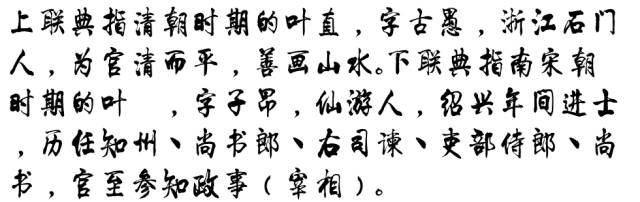 上联典指清朝时期的叶直，字古愚，浙江石门
人，为官清而平，善画山水。下联典指南宋朝
时期的叶　，字子昂，仙游人，绍兴年间进士
，历任知州、尚书郎、右司谏、吏部侍郎、尚
书，官至参知政事（宰相）。